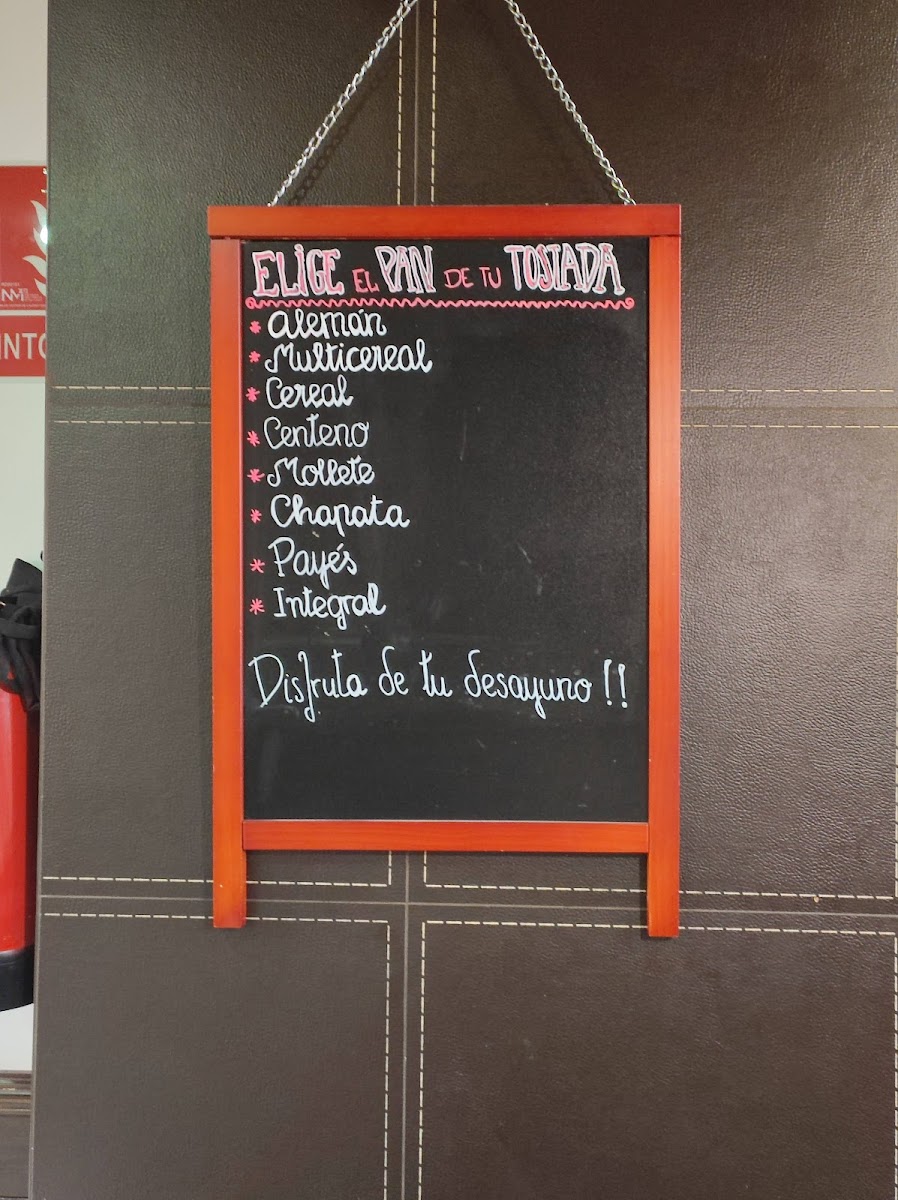 ELIGE EL PAN DE TU TOSTADA
* Alemán
* Multicereal
* Cereal
* Centeno
* Mollete
* Chapata
* Payés
* Integral
Disfruta de tu desayuno !!
INTO